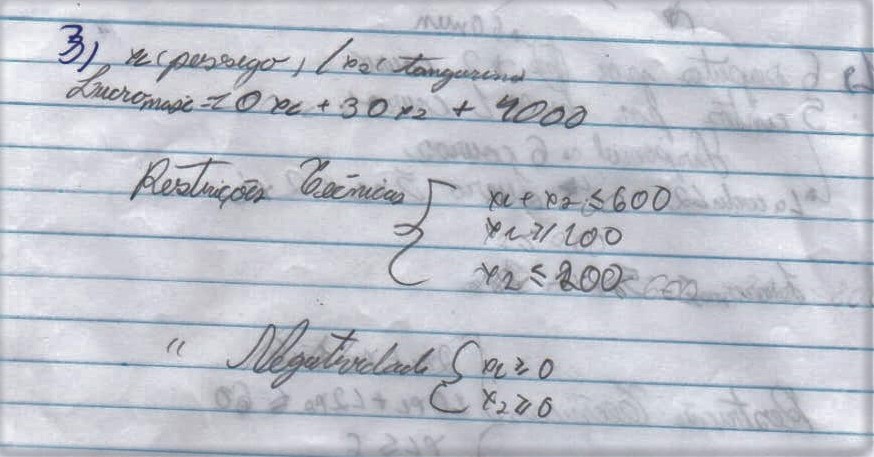 3) x1 (pessego) / x2 (tangerina
Lucro max = 10 x1 + 30 x2 + 4000
Restrições Técnicas { x1 + x2 ≤ 600
x1 ≥ 100
x2 ≤ 200
" Negatividade { x1 ≥ 0
x2 ≥ 0